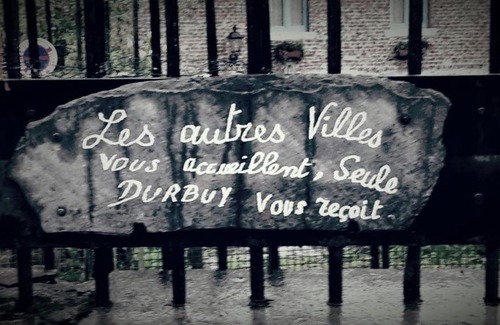 Les autres Villes
Vous accueillent, Seule
DURBUY Vous reçoit.